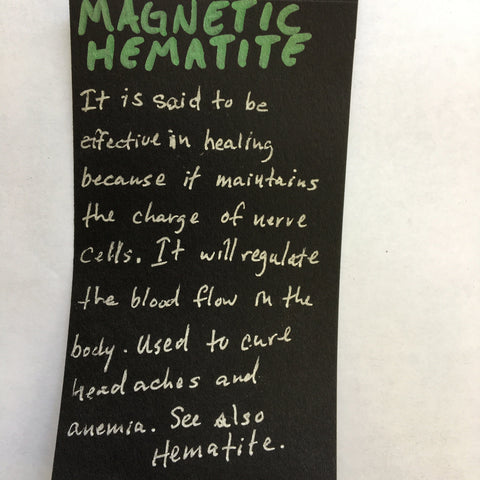 MAGNETIC
HEMATITE
It is said to be
effective in healing
because it maintains
the charge of nerve
cells. It will regulate
the blood flow in the
body. Used to cure
headaches and
anemia. See also
Hematite.